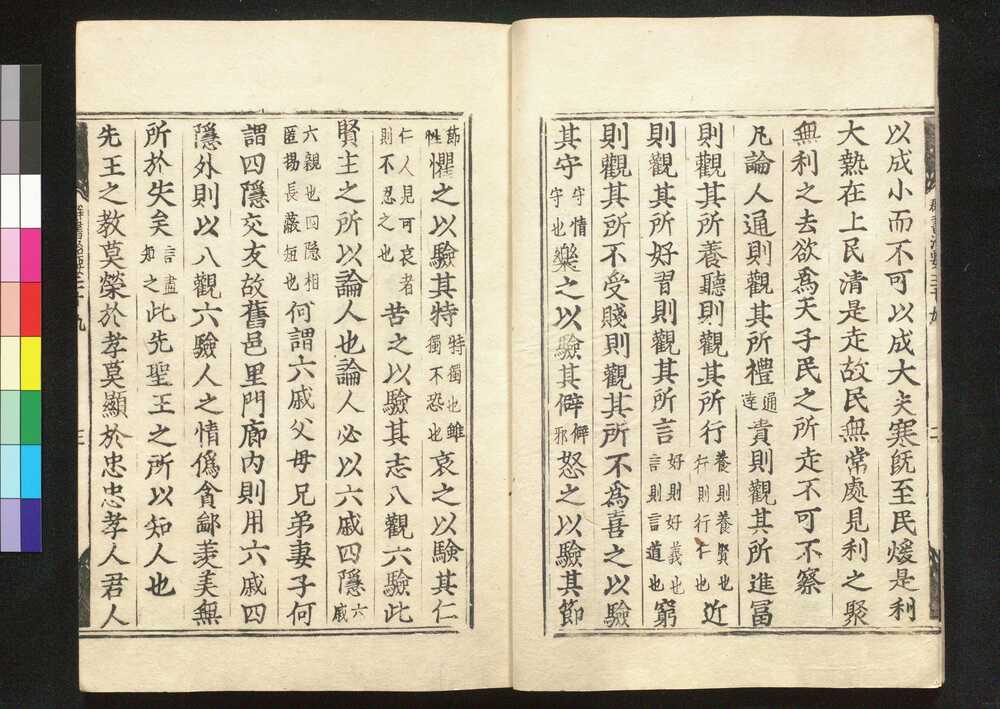 以成小而不可以成大夫寒既至民煖是利
大熱在上民清是走故民無常處見利之聚
無利之去欲為天子民之所走不可不察
凡論人通則觀其所禮通達貴則觀其所進冨
則觀其所養聽則觀其所行養則養賢也行則行仁也近
則觀其所好習則觀其所言好則好義也言則言道也窮
則觀其所不受賤則觀其所不為喜之以驗
其守守情守也樂之以驗其僻僻邪怒之以驗其節
節性懼之以驗其特特獨也雖獨不恐也哀之以驗其仁
仁人見可哀者則不忍之也苦之以驗其志八觀六驗此
賢主之所以論人也論人必以六戚四隱六戚
六親也四隐相匿揚長蔽短也何謂六戚父母兄弟妻子何
謂四隱交友故舊邑里門廊内則用六戚四
隱外則以八觀六驗人之情偽貪鄙羡美無
所於失矣言盡知之此先聖王之所以知人也
先王之教莫榮於孝莫顯於忠忠孝人君人
群書治要三十九 三